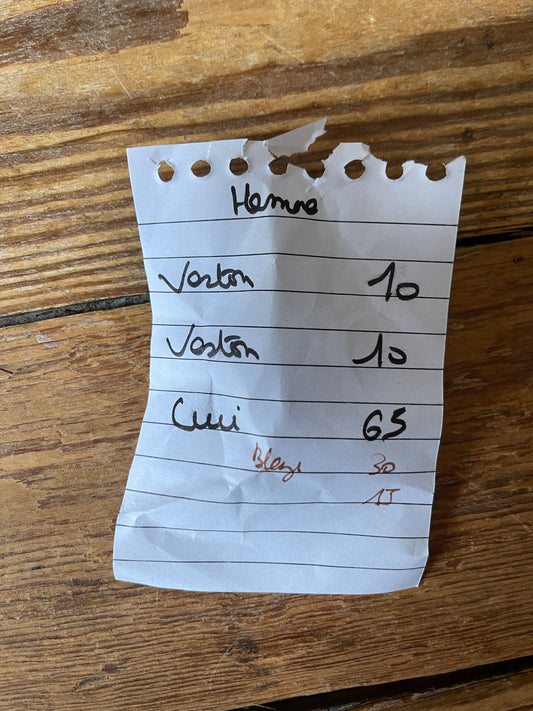 Homme
Veston 10
Veston 10
Cuir 65
Blazer 30
15